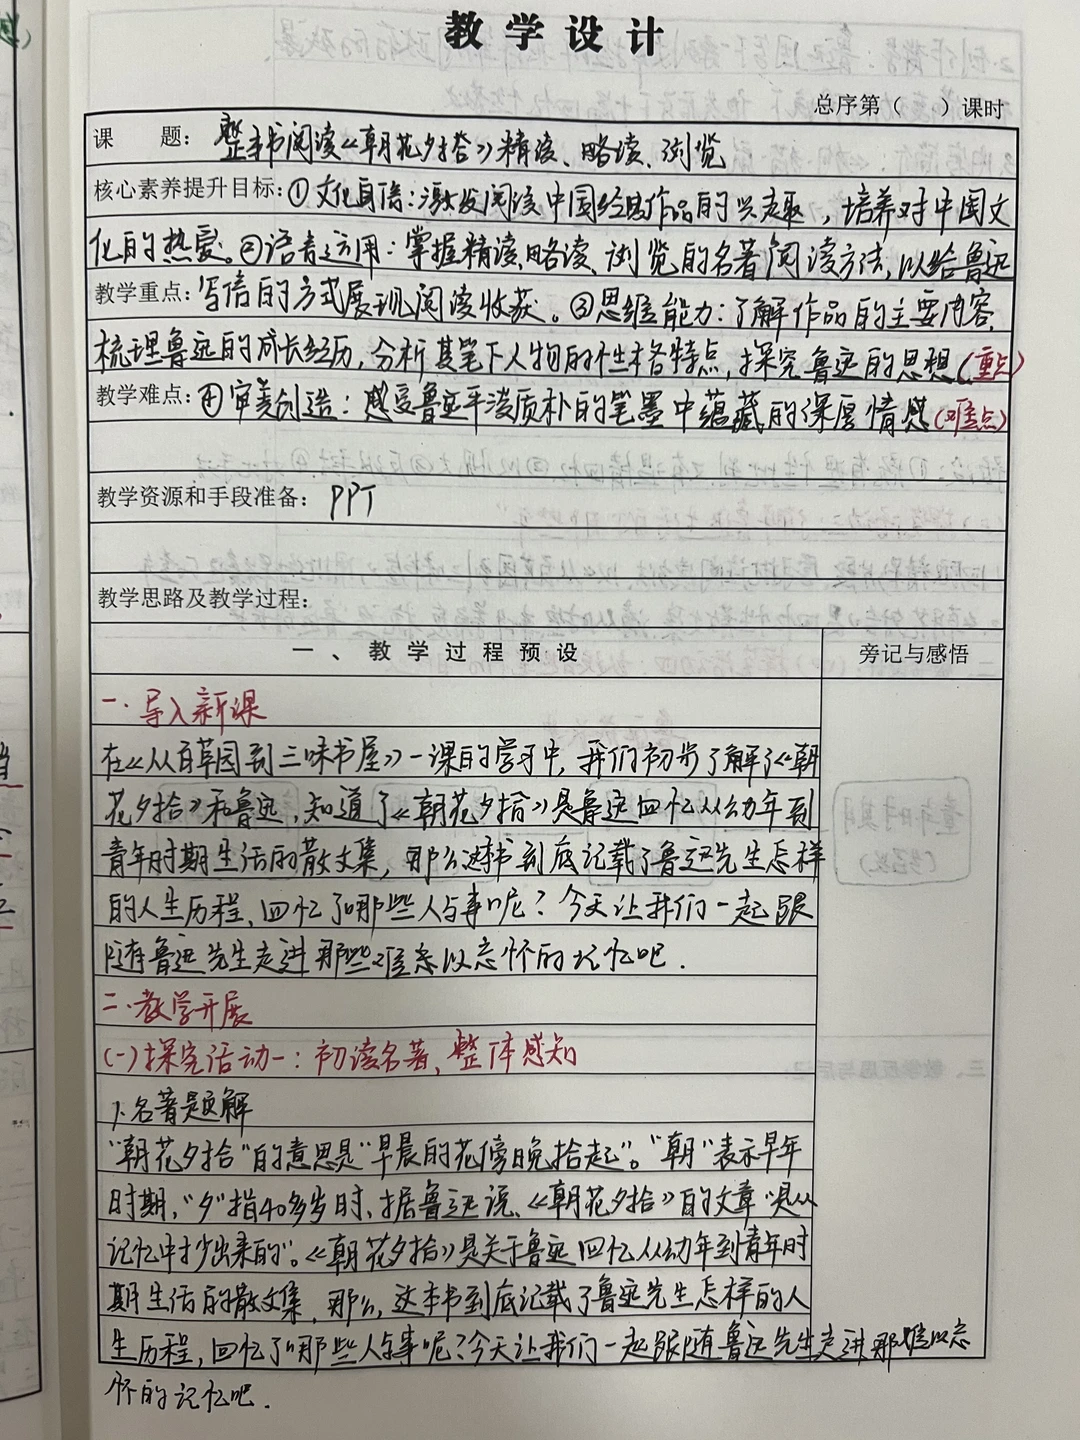 教学设计
总序第（ ）课时
课 题：整本书阅读《朝花夕拾》精读、略读、浏览
核心素养提升目标：①文化自信：激发阅读中国经典作品的兴趣，培养对中国文
化的热爱。②语言运用：掌握精读、略读、浏览的名著阅读方法，以给鲁迅
教学重点：写信的方式展现阅读收获。③思维能力：了解作品的主要内容，
梳理鲁迅的成长经历，分析其笔下人物的性格特点，探究鲁迅的思想（重点）
教学难点：④审美创造：感受鲁迅平淡质朴的笔墨中蕴藏的深厚情感（难点）
教学资源和手段准备：PPT
教学思路及教学过程：
一、教学过程预设
旁记与感悟
一.导入新课
在《从百草园到三味书屋》一课的学习中，我们初步了解了《朝
花夕拾》和鲁迅，知道了《朝花夕拾》是鲁迅回忆从幼年到
青年时期生活的散文集，那么这书到底记载了鲁迅先生怎样
的人生历程，回忆了哪些人与事呢？今天让我们一起跟
随鲁迅先生走进那些难忘以忘怀的记忆吧．
二.教学开展
(一)探究活动一：初读名著，整体感知
1.名著题解
"朝花夕拾"的意思是"早晨的花傍晚拾起"。"朝"表示早年
时期，"夕"指40多岁时，据鲁迅说，《朝花夕拾》的文章"是从
记忆中抄出来的"。《朝花夕拾》是关于鲁迅回忆从幼年到青年时
期生活的散文集，那么，这本书到底记载了鲁迅先生怎样的人
生历程，回忆了哪些人与事呢？今天让我们一起跟随鲁迅先生走进那难以忘
怀的记忆吧．